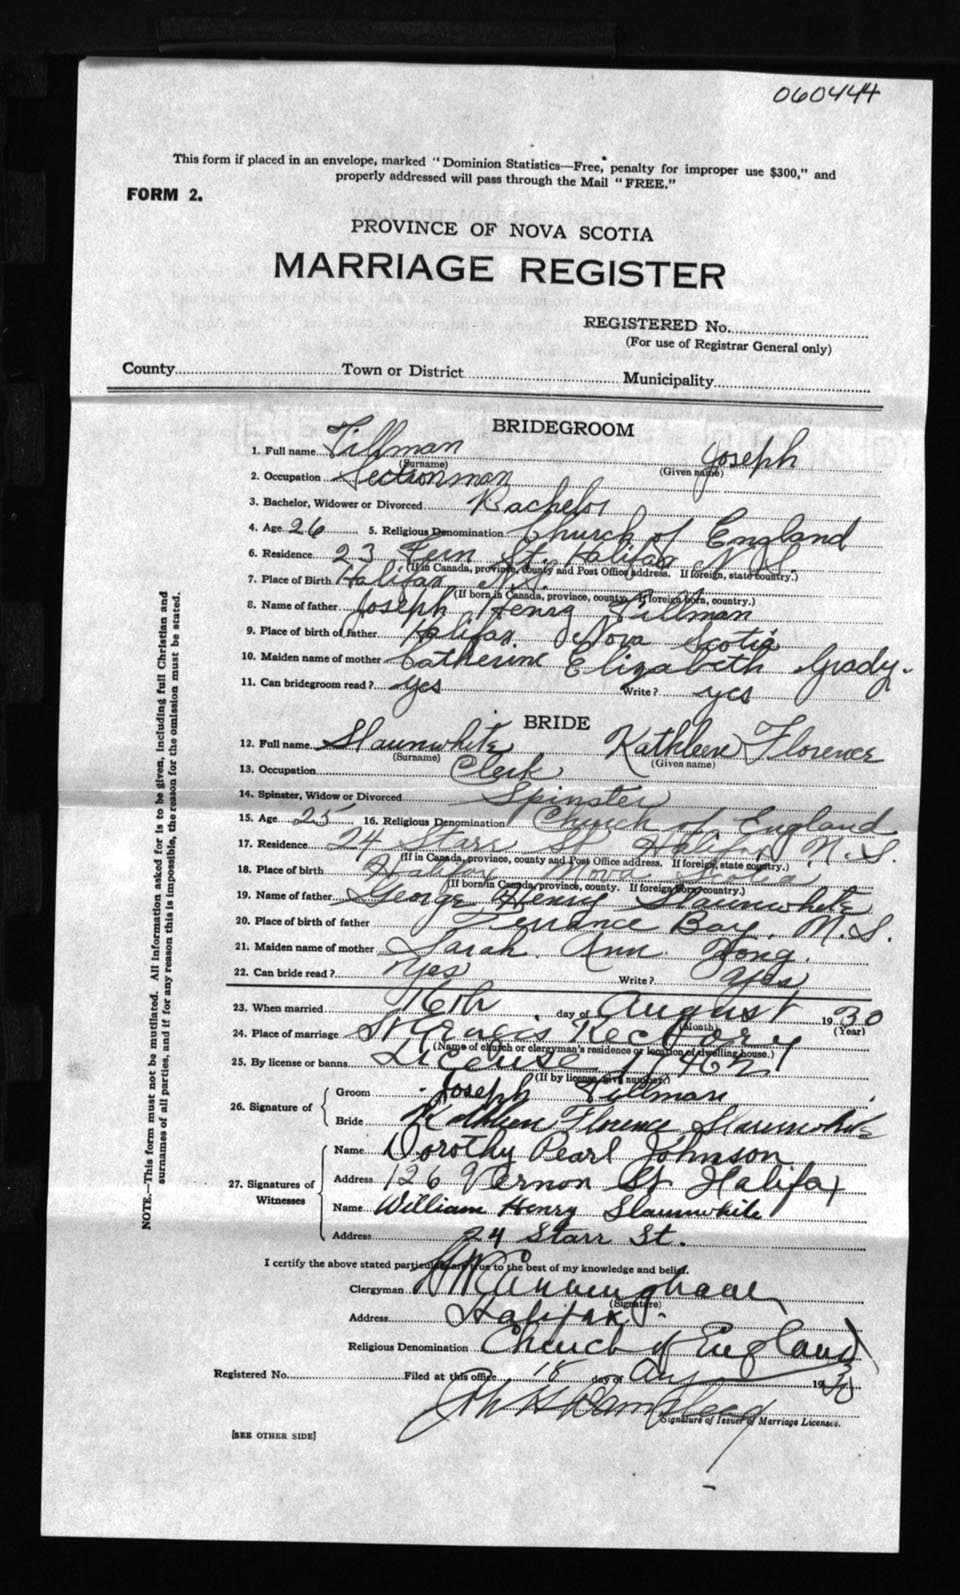 060444
This form if placed in an envelope, marked "Dominion Statistics—Free, penalty for improper use $300," and
properly addressed will pass through the Mail "FREE."
FORM 2.
PROVINCE OF NOVA SCOTIA
MARRIAGE REGISTER
REGISTERED No.
(For use of Registrar General only)
County Town or District Municipality
BRIDEGROOM
1. Full name Tillman Joseph
(Surname) (Given name)
2. Occupation Sectionman
3. Bachelor, Widower or Divorced Bachelor
4. Age 26 5. Religious Denomination Church of England
6. Residence 23 Fern St. Halifax N.S.
(If in Canada, province, county and Post Office address. If foreign, state country.)
7. Place of Birth Halifax N.S.
(If born in Canada, province, county. If foreign born, country.)
8. Name of father Joseph Henry Tillman
9. Place of birth of father Halifax Nova Scotia
10. Maiden name of mother Catherine Elizabeth Grady.
11. Can bridegroom read? yes Write? yes
BRIDE
12. Full name Slaunwhite Kathleen Florence
(Surname) (Given name)
13. Occupation Clerk
14. Spinster, Widow or Divorced Spinster
15. Age 25 16. Religious Denomination Church of England
17. Residence 24 Starr St Halifax N.S.
(If in Canada, province, county and Post Office address. If foreign, state country.)
18. Place of birth Halifax Nova Scotia
(If born in Canada, province, county. If foreign born, country.)
19. Name of father George Henry Slaunwhite
20. Place of birth of father Terrance Bay. N.S.
21. Maiden name of mother Sarah Ann
22. Can bride read? Yes Write? Yes
23. When married 16th day of August 1930
(Month) (Year)
24. Place of marriage St Georges Rectory
(Name of church or clergyman's residence or location of dwelling house.)
25. By license or banns License
(If by license, give number.)
26. Signature of Groom Joseph Tillman
Bride Kathleen Florence Slaunwhite
27. Signatures of Witnesses
Name Dorothy Pearl Johnson
Address 126 Vernon St Halifax
Name William Henry Slaunwhite
Address 24 Starr St.
I certify the above stated particulars are true to the best of my knowledge and belief.
Clergyman Cunningham
(Signature)
Address Halifax
Religious Denomination Church of England
Registered No. Filed at this office 18 day of Aug 1930
Signature of Issuer of Marriage Licenses.
[SEE OTHER SIDE]
NOTE.—This form must not be mutilated. All information asked for is to be given, including full Christian and
surnames of all parties, and if for any reason this is impossible, the reason for the omission must be stated.